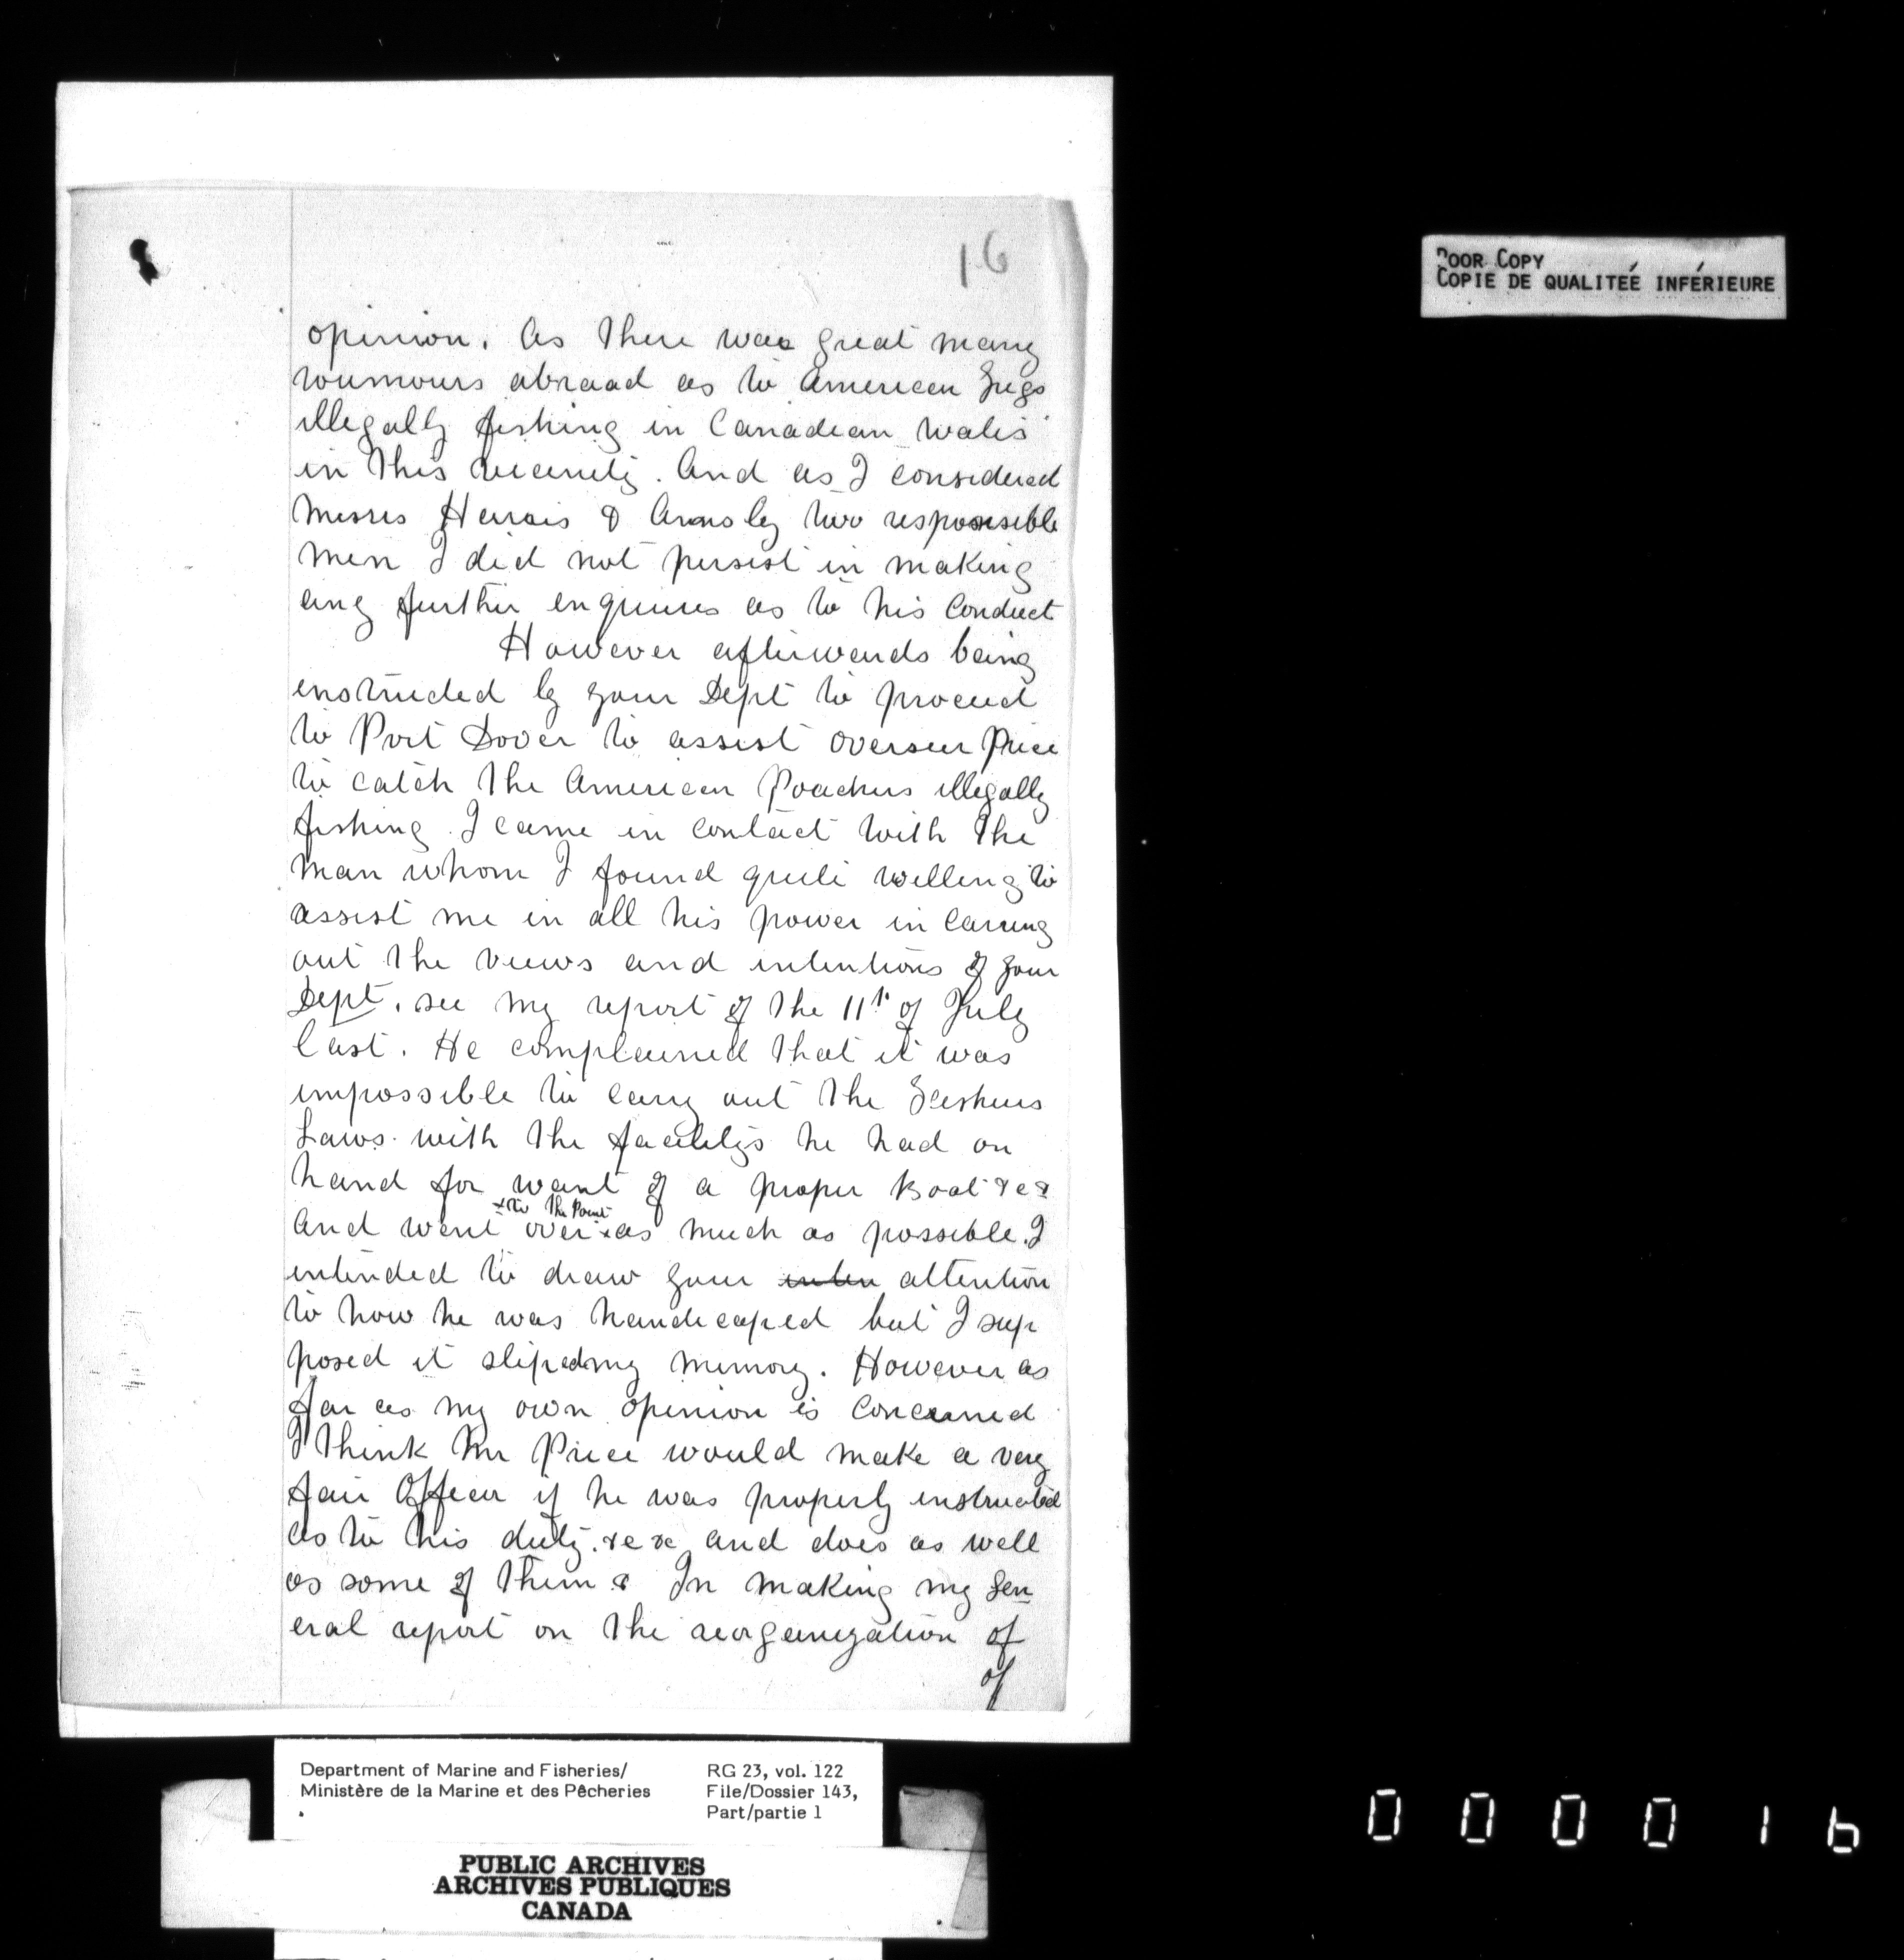 16
opinion. As there was great many
roumours abraad as to American Tugs
illegally fishing in Canadian Waters
in this vicenity. And as I considered
Messrs Harris & Ansley two responsible
Men I did not persist in making
any further enquires as to his Conduct
However afterwards being
enstructed by your Dept to proceed
to Port Dover to assist overseer Price
to catch the American Poachers illegally
fishing. I came in contact with the
Man whom I found quite willing to
assist me in all his power in Carring
out the views and intentions of your
Dept. see my report of the 11th of July
last. He complained that it was
impossible to carry out the Fisheries
Laws. with the facilitys he had on
hand for want of a proper Boat &c&
+ to the Point
And went over + as much as possible. I
intended to draw your inten attention
to how he was handicaped but I sup
posed it sliped my memory. However as
far as my own opinion is Concerned
I think Mr Price would make a very
fair Officer if he was properly instructed
as to his duty. &c &c and does as well
as some of them & In making my Gen
eral report on the reorganization of
of
POOR COPY
COPIE DE QUALITEÉ INFÉRIEURE
Department of Marine and Fisheries/
Ministère de la Marine et des Pêcheries
RG 23, vol. 122
File/Dossier 143,
Part/partie 1
PUBLIC ARCHIVES
ARCHIVES PUBLIQUES
CANADA
000016